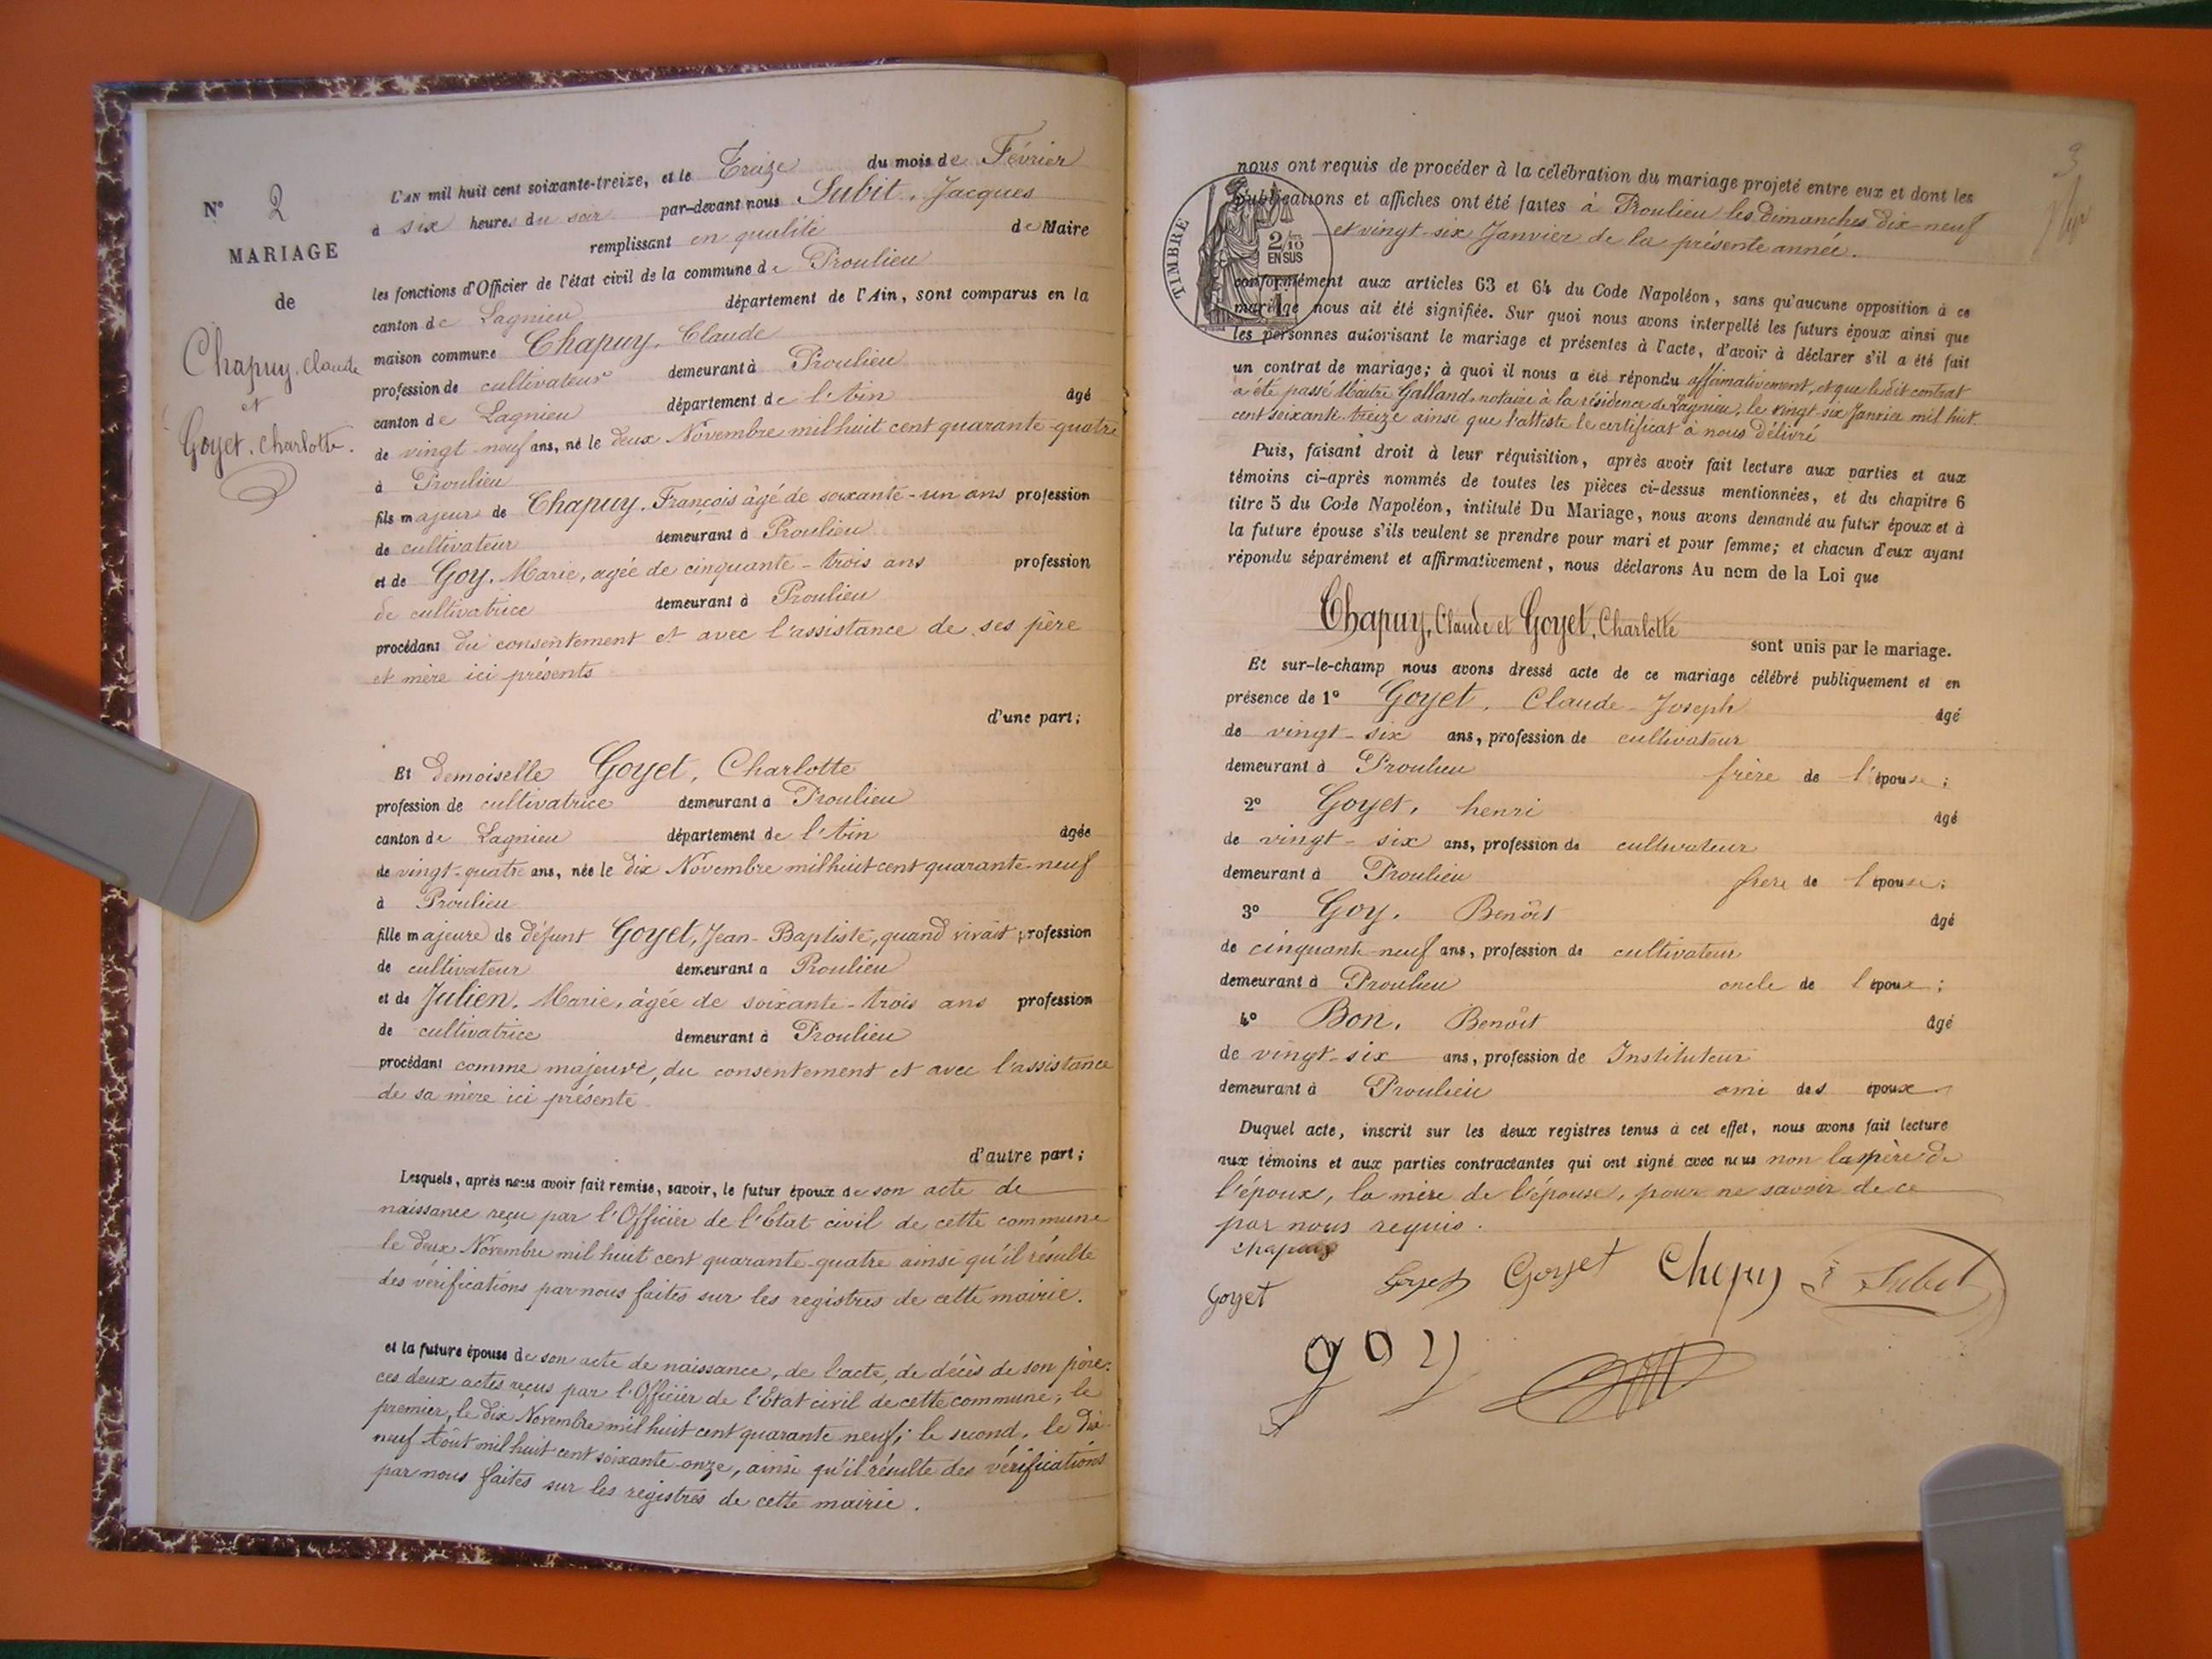 N° 2
MARIAGE
de
Chapuy, Claude
et
Goyet, Charlotte.
L'AN mil huit cent soixante-treize, et le Treize du mois de Février
à six heures du soir par-devant nous Subit, Jacques
remplissant en qualité de Maire
les fonctions d'Officier de l'état civil de la commune de Proulieu
canton de Lagnieu département de l'Ain, sont comparus en la
maison commune Chapuy, Claude
profession de cultivateur demeurant à Proulieu
canton de Lagnieu département de l'Ain âgé
de vingt-neuf ans, né le deux Novembre mil huit cent quarante-quatre
à Proulieu
fils majeur de Chapuy, François âgé de soixante-un ans profession
de cultivateur demeurant à Proulieu
et de Goy, Marie, agée de cinquante-trois ans profession
de cultivatrice demeurant à Proulieu
procédant du consentement et avec l'assistance de ses père
et mère ici présents
d'une part;
Et demoiselle Goyet, Charlotte
profession de cultivatrice demeurant à Proulieu
canton de Lagnieu département de l'Ain âgée
de vingt-quatre ans, née le dix Novembre mil huit cent quarante-neuf
à Proulieu
fille majeure de défunt Goyet, Jean-Baptiste, quand vivait profession
de cultivateur demeurant à Proulieu
et de Julien, Marie, âgée de soixante-trois ans profession
de cultivatrice demeurant à Proulieu
procédant comme majeure, du consentement et avec l'assistance
de sa mère ici présente
d'autre part;
Lesquels, après nous avoir fait remise, savoir, le futur époux de son acte de
naissance reçu par l'Officier de l'Etat civil de cette commune
le deux Novembre mil huit cent quarante-quatre ainsi qu'il résulte
des vérifications par nous faites sur les registres de cette mairie.
et la future épouse de son acte de naissance, de l'acte de décès de son père.
ces deux actes reçus par l'Officier de l'Etat civil de cette commune; le
premier, le dix Novembre mil huit cent quarante neuf; le second, le dix-
neuf Août mil huit cent soixante-onze, ainsi qu'il résulte des vérifications
par nous faites sur les registres de cette mairie.
3
nous ont requis de procéder à la célébration du mariage projeté entre eux et dont les
publications et affiches ont été faites à Proulieu les dimanches dix-neuf
et vingt-six Janvier de la présente année.
TIMBRE
2/10
EN SUS
conformément aux articles 63 et 64 du Code Napoléon, sans qu'aucune opposition à ce
mariage nous ait été signifiée. Sur quoi nous avons interpellé les futurs époux ainsi que
les personnes autorisant le mariage et présentes à l'acte, d'avoir à déclarer s'il a été fait
un contrat de mariage; à quoi il nous a été répondu affirmativement, et que ledit contrat
a été passé Maître Galland, notaire à la résidence de Lagnieu, le vingt-six Janvier mil huit
cent soixante-treize ainsi que l'atteste le certificat à nous délivré
Puis, faisant droit à leur réquisition, après avoir fait lecture aux parties et aux
témoins ci-après nommés de toutes les pièces ci-dessus mentionnées, et du chapitre 6
titre 5 du Code Napoléon, intitulé Du Mariage, nous avons demandé au futur époux et à
la future épouse s'ils veulent se prendre pour mari et pour femme; et chacun d'eux ayant
répondu séparément et affirmativement, nous déclarons Au nom de la Loi que
Chapuy, Claude et Goyet, Charlotte
sont unis par le mariage.
Et sur-le-champ nous avons dressé acte de ce mariage célébré publiquement et en
présence de 1° Goyet, Claude-Joseph âgé
de vingt-six ans, profession de cultivateur
demeurant à Proulieu frère de l'épouse;
2° Goyet, henri âgé
de vingt-six ans, profession de cultivateur
demeurant à Proulieu frère de l'épouse;
3° Goy, Benoît âgé
de cinquante-neuf ans, profession de cultivateur
demeurant à Proulieu oncle de l'époux;
4° Bon, Benoît âgé
de vingt-six ans, profession de Instituteur
demeurant à Proulieu ami des époux
Duquel acte, inscrit sur les deux registres tenus à cet effet, nous avons fait lecture
aux témoins et aux parties contractantes qui ont signé avec nous non père de
l'époux, la mère de l'épouse, pour ne savoir de ce
par nous requis.
Chapuy
Goyet Goyet Goyet Chapuy Subit
goy